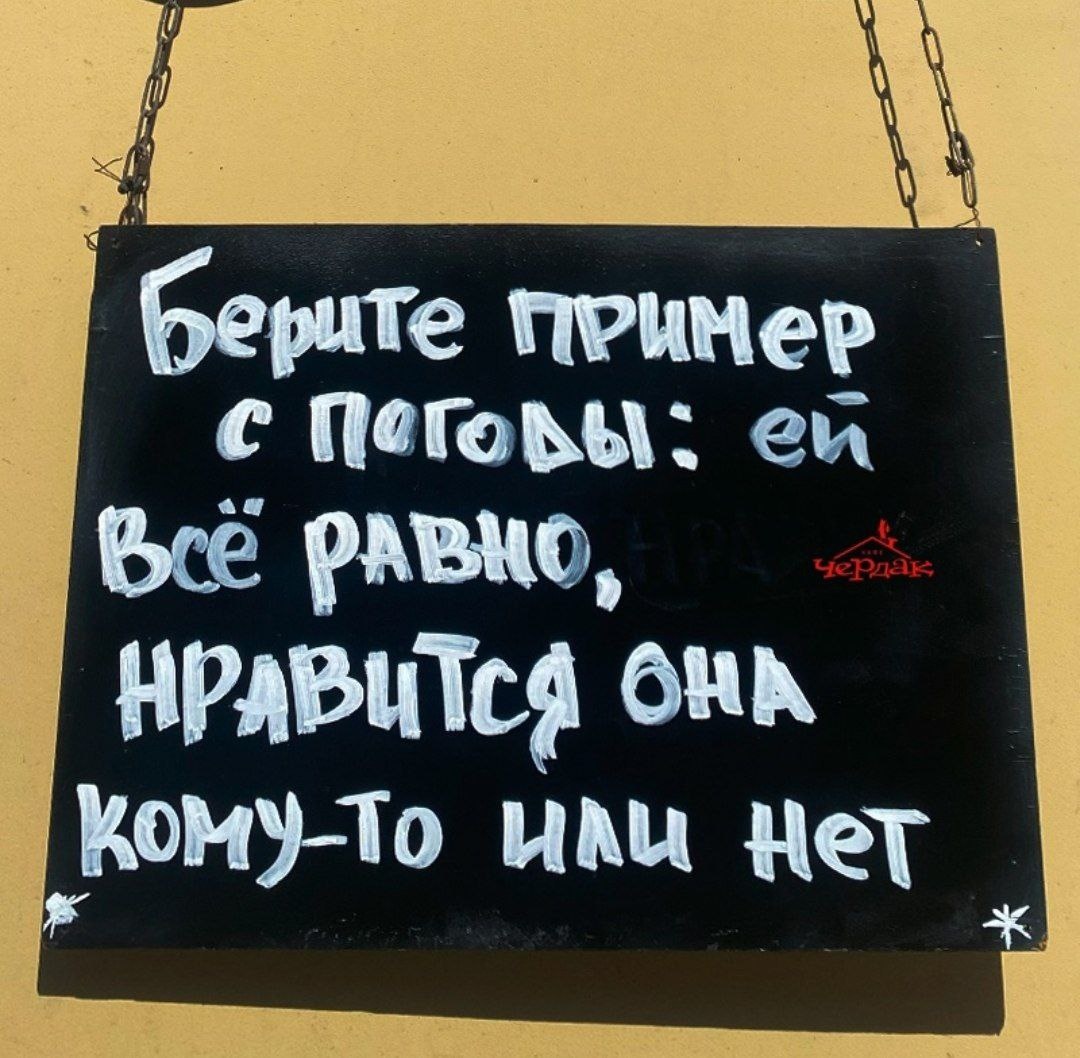 Берите пример
с погоды: ей
всё равно,
чердак
нравится она
кому-то или нет